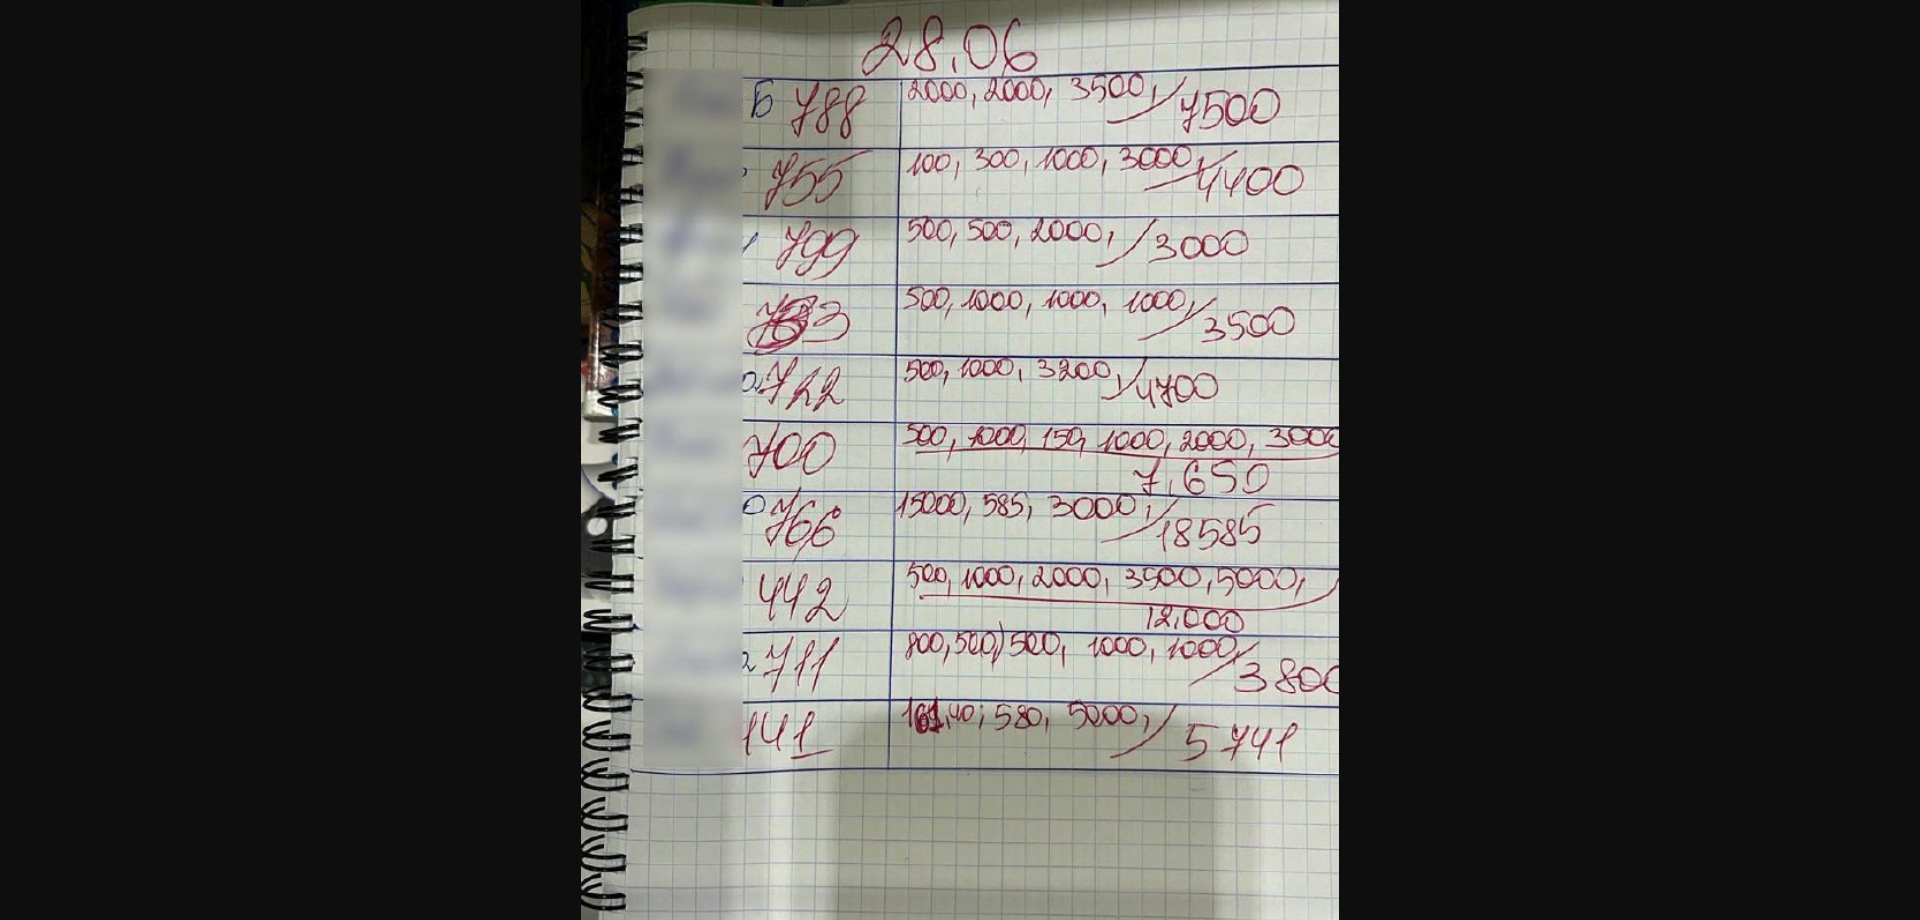 28.06
Б 788 2000, 2000, 3500, / 7500
755 100, 300, 1000, 3000, / 4400
799 500, 500, 2000, / 3000
500, 1000, 1000, 1000, / 3500
722 500, 1000, 3200, / 4700
700 500, 1000, 150, 1000, 2000, 3000
7.650
766 15000, 585, 3000, / 18585
442 500, 1000, 2000, 3500, 5000,
12.000
711 800, 500, 500, 1000, 1000, / 3800
141 40, 580, 5000, / 5741